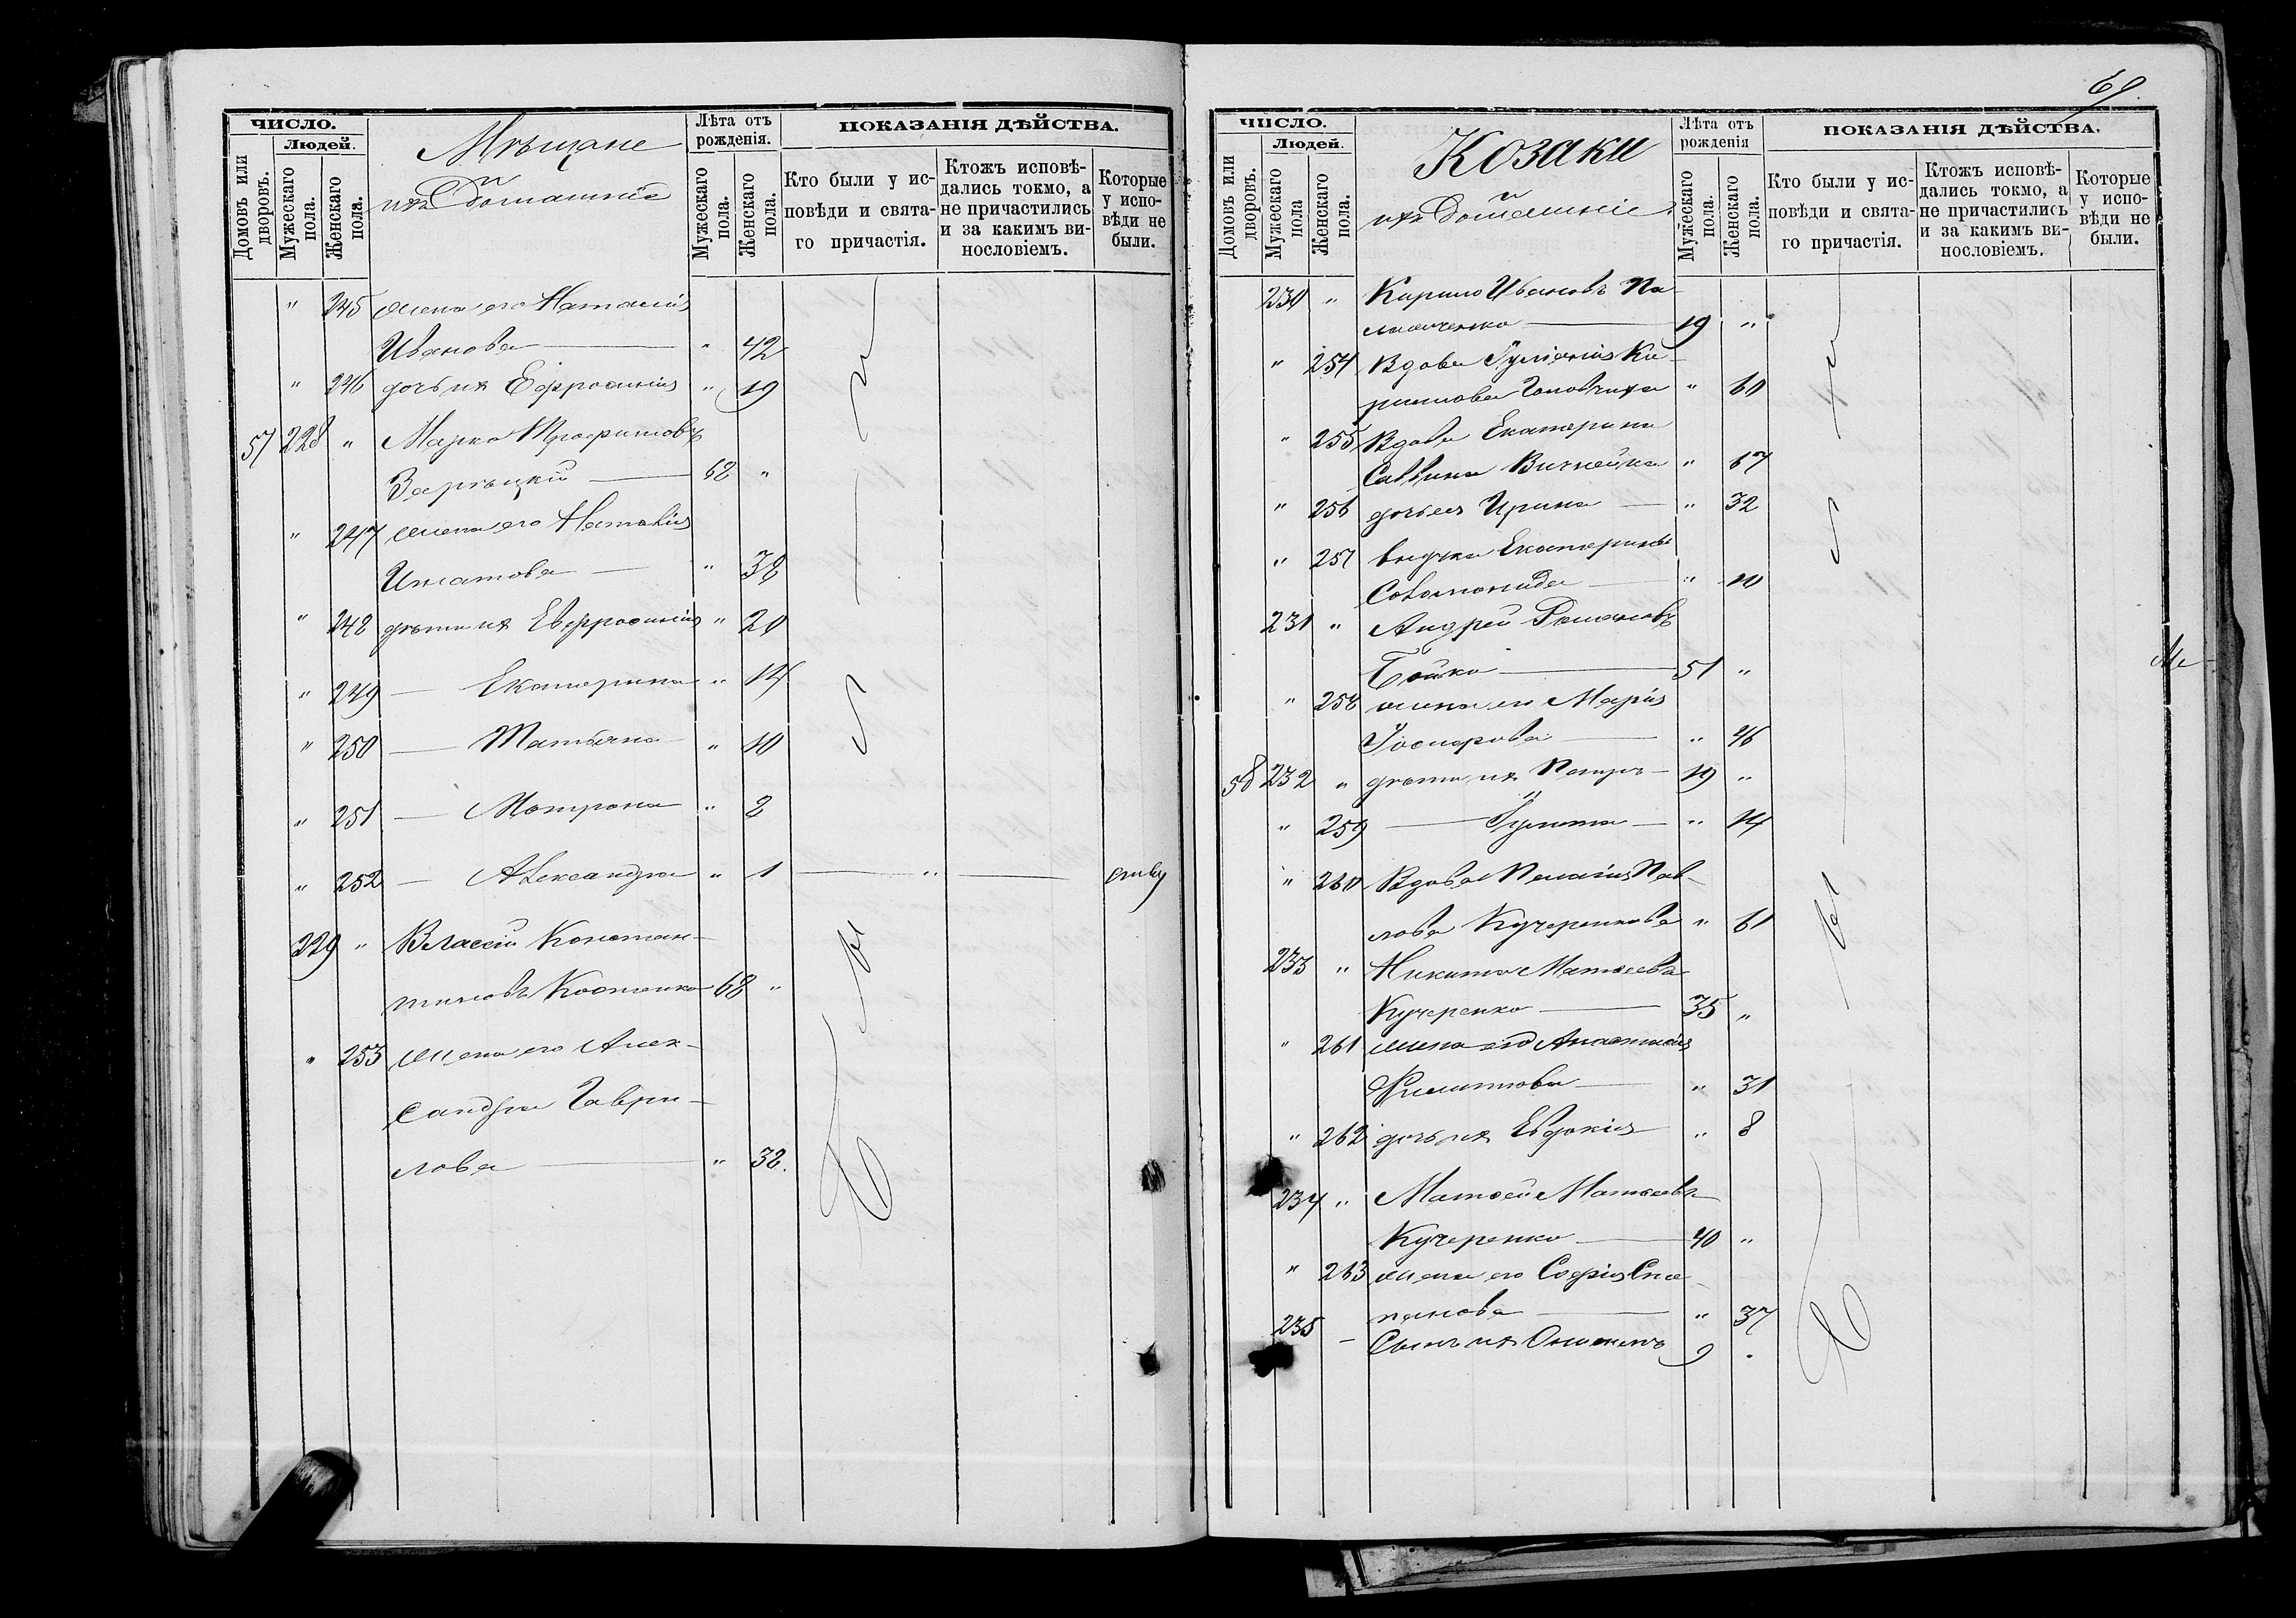 ЧИСЛО.
Домовъ или дворовъ.
Людей.
Мужескаго пола.
Женскаго пола.
Мѣщане
и
ихъ Домашніе
Лѣта отъ рожденія.
Мужескаго пола.
Женскаго пола.
ПОКАЗАНІЯ ДѢЙСТВА.
Кто были у исповѣди и святаго причастія.
Ктожъ исповѣдались токмо, а не причастились и за какимъ винословіемъ.
Которые у исповѣди не были.
" 245 жена его Наталія
Иванова — " 42
" 246 дочь их Ефросинія " 19
57 228 " Марко Трофимовъ
Зарѣцкій — 62 "
" 247 жена его Наталія
Игнатова — " 38
" 248 дѣти их Евфросинія " 20
" 249 — Екатерина " 14
" 250 — Татьяна " 10
" 251 — Матрона " 2
" 252 — Александра " 1 — " —
229 " Власій Констан-
тиновъ Костенко 68 "
" 253 жена его Алек-
сандра Гаври-
лова — " 38.
69.
ЧИСЛО.
Домовъ или дворовъ.
Людей.
Мужескаго пола
Женскаго пола.
Козаки
и
ихъ Домашніе.
Лѣта отъ рожденія
Мужескаго пола.
Женскаго пола.
ПОКАЗАНІЯ ДѢЙСТВА.
Кто были у исповѣди и святаго причастія.
Ктожъ исповѣдались токмо, а не причастились и за какимъ винословіемъ.
Которые у исповѣди не были.
230 " Кирило Ивановъ Па-
— 19 "
" 254 Вдова Іуліанія Ки-
рилова " 60
" 255 Вдова Екатерина
Саввина " 67
" 256 дочь ея Ирина — " 32
" 257 внучка Екатерины
Соломонида — " 10
231 " Андрей Романовъ
Бойко — 51 "
" 258 жена его Марія
— " 46
58 232 " дѣти их Петръ — 19 "
" 259 — Іулита — " 14
" 260 Вдова Пелагія Пав-
лова Кучеренкова " 61
233 " Никита Матѳеевъ
Кучеренко — 35 "
" 261 жена его Анастасія
Филиппова — " 31
" 262 дочь их Евдокія " 8
234 " Матѳей Матѳеевъ
Кучеренко — 40 "
" 263 жена его Софія Сте-
панова — " 37
235 — Сынъ их 9 "